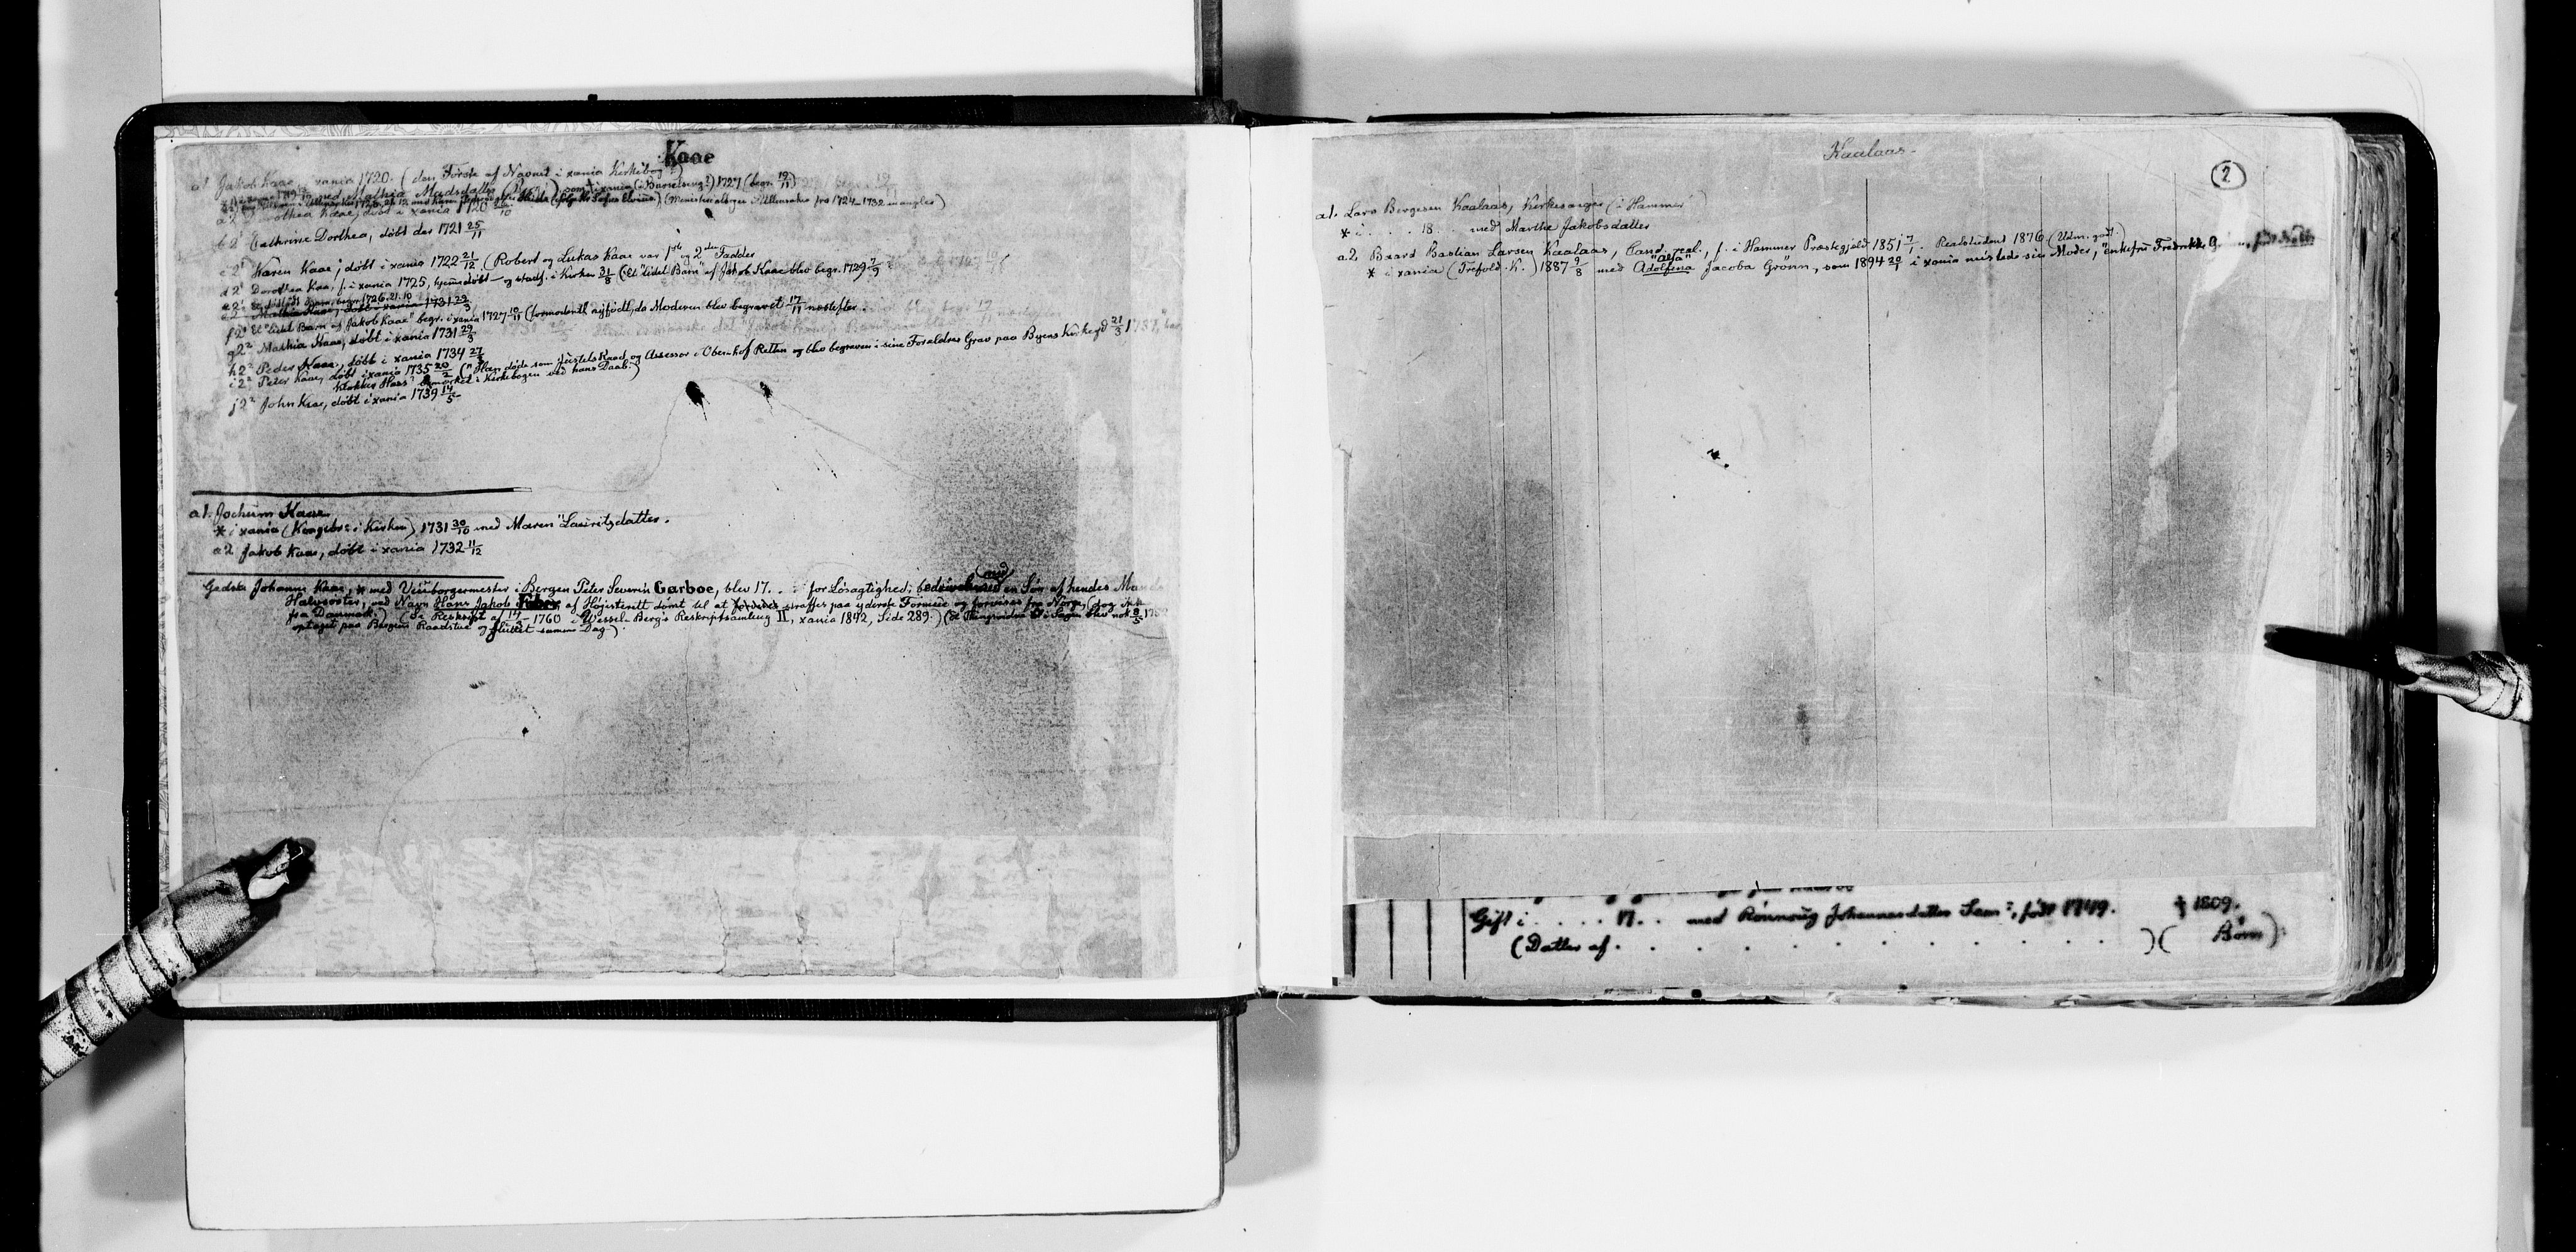 Kaae
a1 Jakob Kaae, xania 1720. (den Første af Navnet i xania Kirkebog?)
Mathia Madsdatter som † i xania (i Barselseng?) 1727 (begr. 19/11)
(Ministerialbogen Attensaker fra 1724-1732 mangler)
a2 Dorothea Kaae, døbt i xania 1720
b2¹ Cathrine Dorthea, døbt der 1721 25/11
c2¹ Karen Kaae, døbt i xania 1722 21/12 (Robert og Lukas Kaae var 1ste og 2den Fadder
d2¹ Dorothea Kaa, f. i xania 1725, hjemmedøbt og stadf. i Kirken 31/8 (Et "lidet Barn" af Jakob Kaae blev begr. 1729 7/9
e2¹ Et dødfødt Barn, begr. 1726.21.10
Mathia Kaae, døbt i xania 1731 29/3
f2¹ Et "lidet Barn af Jakob Kaae" begr. i xania 1727 10/11 (formodentlig nyfødt, da Moderen blev begravet 17/11 næstefter.
g2² Mathia Kaae, døbt i xania 1731 29/3
h2² Peder Kaae, døbt i xania 1734 27/3
i2² Peter Kaae, døbt i xania 1735 20/2 ("Han døde som Justits Raad og Assessor i Oberhof Retten og blev begraven i sine Forældres Grav paa Byens Kirkegd 21/3
Klokker Hass' bemærket i Kirkebogen ved hans Daab.)
j2² John Kaae, døbt i xania 1739 14/5
a1. Jochum Kaae
* i xania (Kongebr. i Kirken) 1731 30/10 med Maren Lauritsdatter.
a2 Jakob Kaae, døbt i xania 1732 11/12
Gedske Johanne Kaae, * med Viceborgermester i Bergen Peter Severin Garboe, blev 17. . : for Løsagtighed, bedreven med en Søn af hendes
med
Halvsøster, ved Navn Hans Jakob Faber af Højesterett dømt til at straffes paa yderste Formue og forvises fra Norge, (dog ikke
fra Danmark.) (Se Reskript af 14/3 1760 i Wessel-Berg's Reskriptsamling II, xania 1842, Side 289.) (Et Thingsvidne i Sagen blev
optaget paa Bergens Raadstue og sluttet samme Dag.)
Kaalaas.
2
a1. Lars Bergesen Kaalaas, Kirkesanger (i Hammer)
* i . . . . 18 . . med Marthe Jakobsdatter
a2. Baard Bastian Larsen Kaalaas, Cand. real., f. i Hammer Præstegjeld 1851 7/1. Realstudent 1876 (Udm. godt.)
"Alfa"
* i xania (Trefold. K.) 1887 9/8 med Adolfina Jacoba Grønn, som 1894 20/1 i xania mistede sin Moder, "enkefru Fredrikke G
Gift i . . . . 17. . med Rønnoug Johannesdatter født 1749. † 1809.
(Datter af . . . . . . . . . . . ) ( Børn):